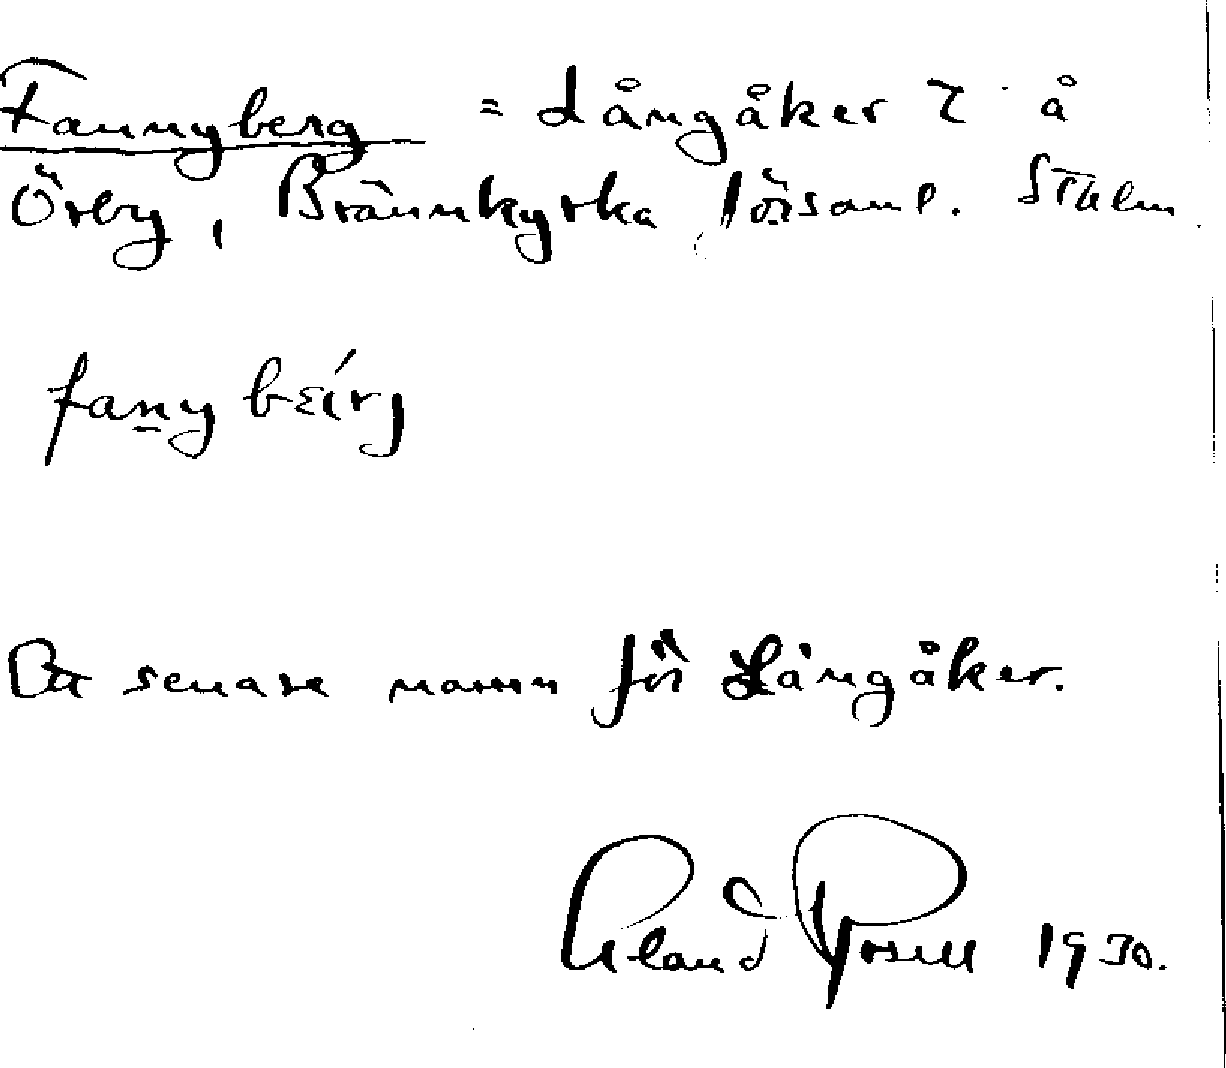 Fannyberg = Långåker 7 å
Örby, Brännkyrka församl. Sthlm.
fany bɛ́rj
Det senare namn för Långåker.
Erland Rosell 1930.